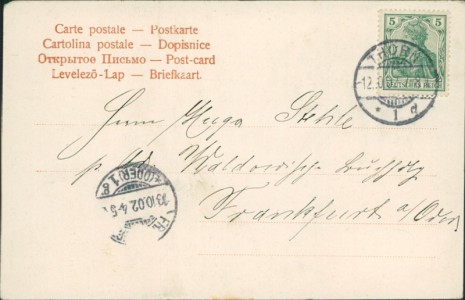 Carte postale — Postkarte
Cartolina postale — Dopisnice
Открытое Письмо — Post-card
Levelező-Lap — Briefkaart.
5 5
THORN
* 1 d
Herrn Hugo Stehle
p. Ad. Waldowische Buchhdlg
Frankfurt a/Oder
(ODER) 1
3 10 02 4-5